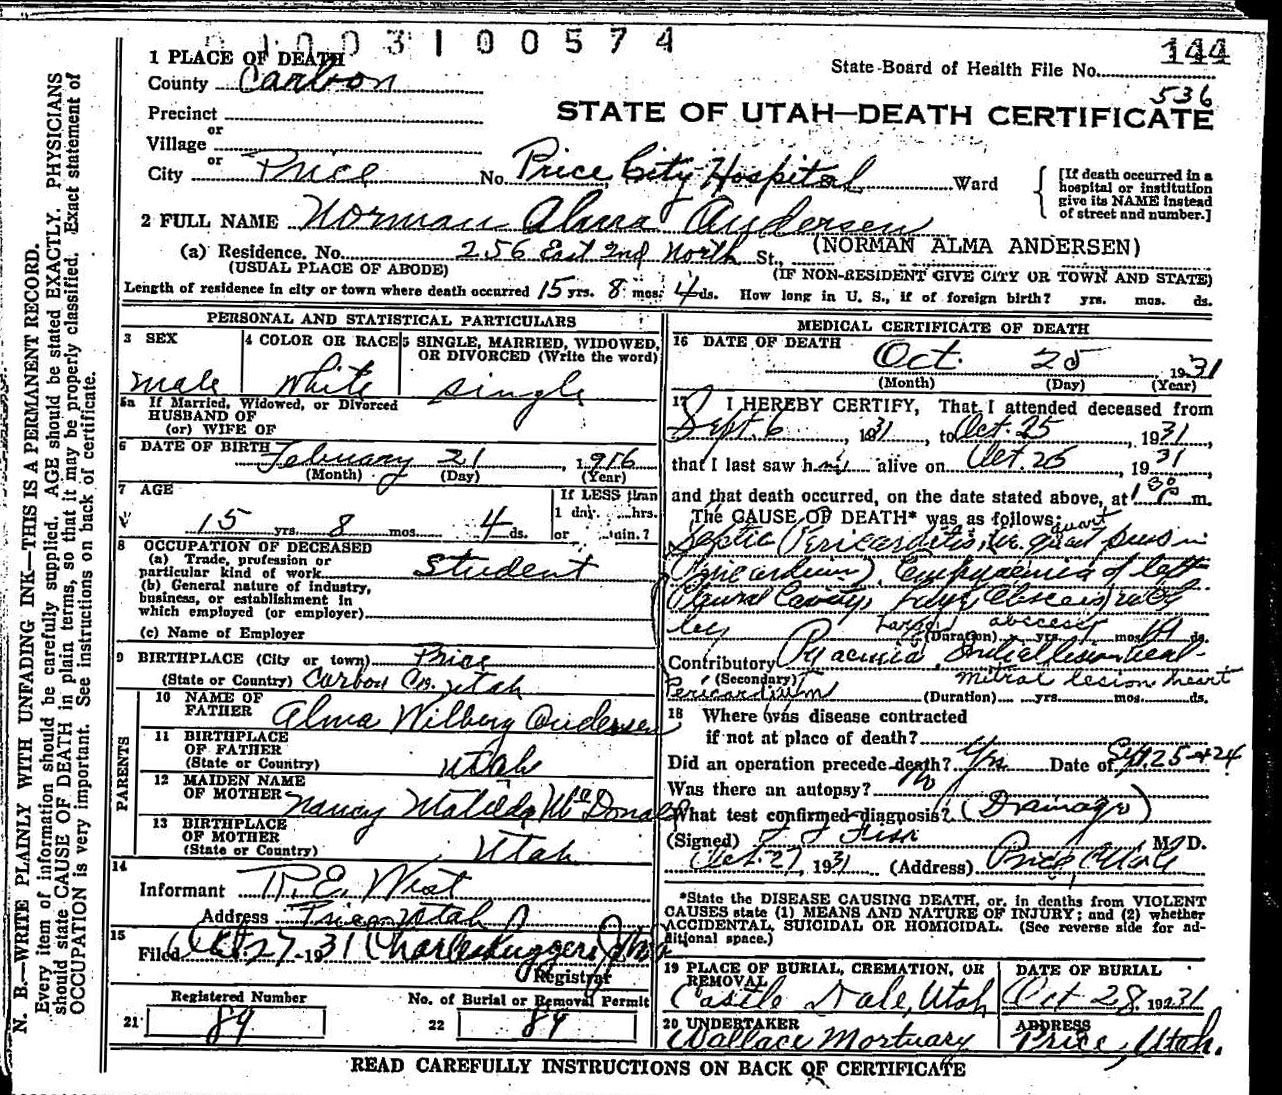 1003100574
144
State Board of Health File No.
536
1 PLACE OF DEATH
County Carbon
STATE OF UTAH—DEATH CERTIFICATE
Precinct
or
Village
or
City Price No. Price City Hospital Ward
[If death occurred in a hospital or institution give its NAME instead of street and number.]
2 FULL NAME Norman Alma Andersen
(NORMAN ALMA ANDERSEN)
(a) Residence. No. 256 East 2nd North St.,
(USUAL PLACE OF ABODE) (IF NON-RESIDENT GIVE CITY OR TOWN AND STATE)
Length of residence in city or town where death occurred 15 yrs. 8 mos. 4 ds. How long in U. S., if of foreign birth? yrs. mos. ds.
PERSONAL AND STATISTICAL PARTICULARS
3 SEX
male
4 COLOR OR RACE
White
5 SINGLE, MARRIED, WIDOWED, OR DIVORCED (Write the word)
Single
5a If Married, Widowed, or Divorced
HUSBAND OF
(or) WIFE OF
6 DATE OF BIRTH February 21, 1916
(Month) (Day) (Year)
7 AGE
15 yrs. 8 mos. 4 ds.
If LESS than
1 day, hrs.
or min.?
8 OCCUPATION OF DECEASED
(a) Trade, profession or
particular kind of work Student
(b) General nature of industry,
business, or establishment in
which employed (or employer)
(c) Name of Employer
9 BIRTHPLACE (City or town) Price
(State or Country) Carbon Co. Utah
PARENTS
10 NAME OF
FATHER Alma Wilberg Andersen
11 BIRTHPLACE
OF FATHER
(State or Country) Utah
12 MAIDEN NAME
OF MOTHER Nancy Matilda McDonald
13 BIRTHPLACE
OF MOTHER
(State or Country) Utah
14
Informant R. E. West
Address Price, Utah
15
Filed Oct. 27-1931
Registrar
Registered Number
21 89
No. of Burial or Removal Permit
22 89
MEDICAL CERTIFICATE OF DEATH
16 DATE OF DEATH
Oct. 25, 1931
(Month) (Day) (Year)
17 I HEREBY CERTIFY, That I attended deceased from
Sept. 6, 1931, to Oct. 25, 1931,
that I last saw him alive on Oct. 25, 1931,
and that death occurred, on the date stated above, at 1 30 P m.
The CAUSE OF DEATH* was as follows:
quart
Septic Pericarditis, pus in
Pericardium) Empyaemia of left
Pleural Cavity, Large Abscess
leg Large abscess
(Duration) yrs. 1 mos. 19 ds.
Contributory Pyaemia, Initial lesion
(Secondary) mitral lesion heart
Pericardium (Duration) yrs. mos. ds.
18 Where was disease contracted
if not at place of death?
Did an operation precede death? Yes Date of Sept. 25
Was there an autopsy? No
What test confirmed diagnosis? (Drainage)
(Signed) M. D.
Oct. 27, 1931 (Address) Price, Utah
*State the DISEASE CAUSING DEATH, or, in deaths from VIOLENT
CAUSES state (1) MEANS AND NATURE OF INJURY; and (2) whether
ACCIDENTAL, SUICIDAL OR HOMICIDAL. (See reverse side for ad-
ditional space.)
19 PLACE OF BURIAL, CREMATION, OR
REMOVAL
Castle Dale, Utah
DATE OF BURIAL
Oct 28, 1931
20 UNDERTAKER
Wallace Mortuary
ADDRESS
Price, Utah.
READ CAREFULLY INSTRUCTIONS ON BACK OF CERTIFICATE
N. B.—WRITE PLAINLY WITH UNFADING INK—THIS IS A PERMANENT RECORD.
Every item of information should be carefully supplied. AGE should be stated EXACTLY. PHYSICIANS
should state CAUSE OF DEATH in plain terms, so that it may be properly classified. Exact statement of
OCCUPATION is very important. See instructions on back of certificate.